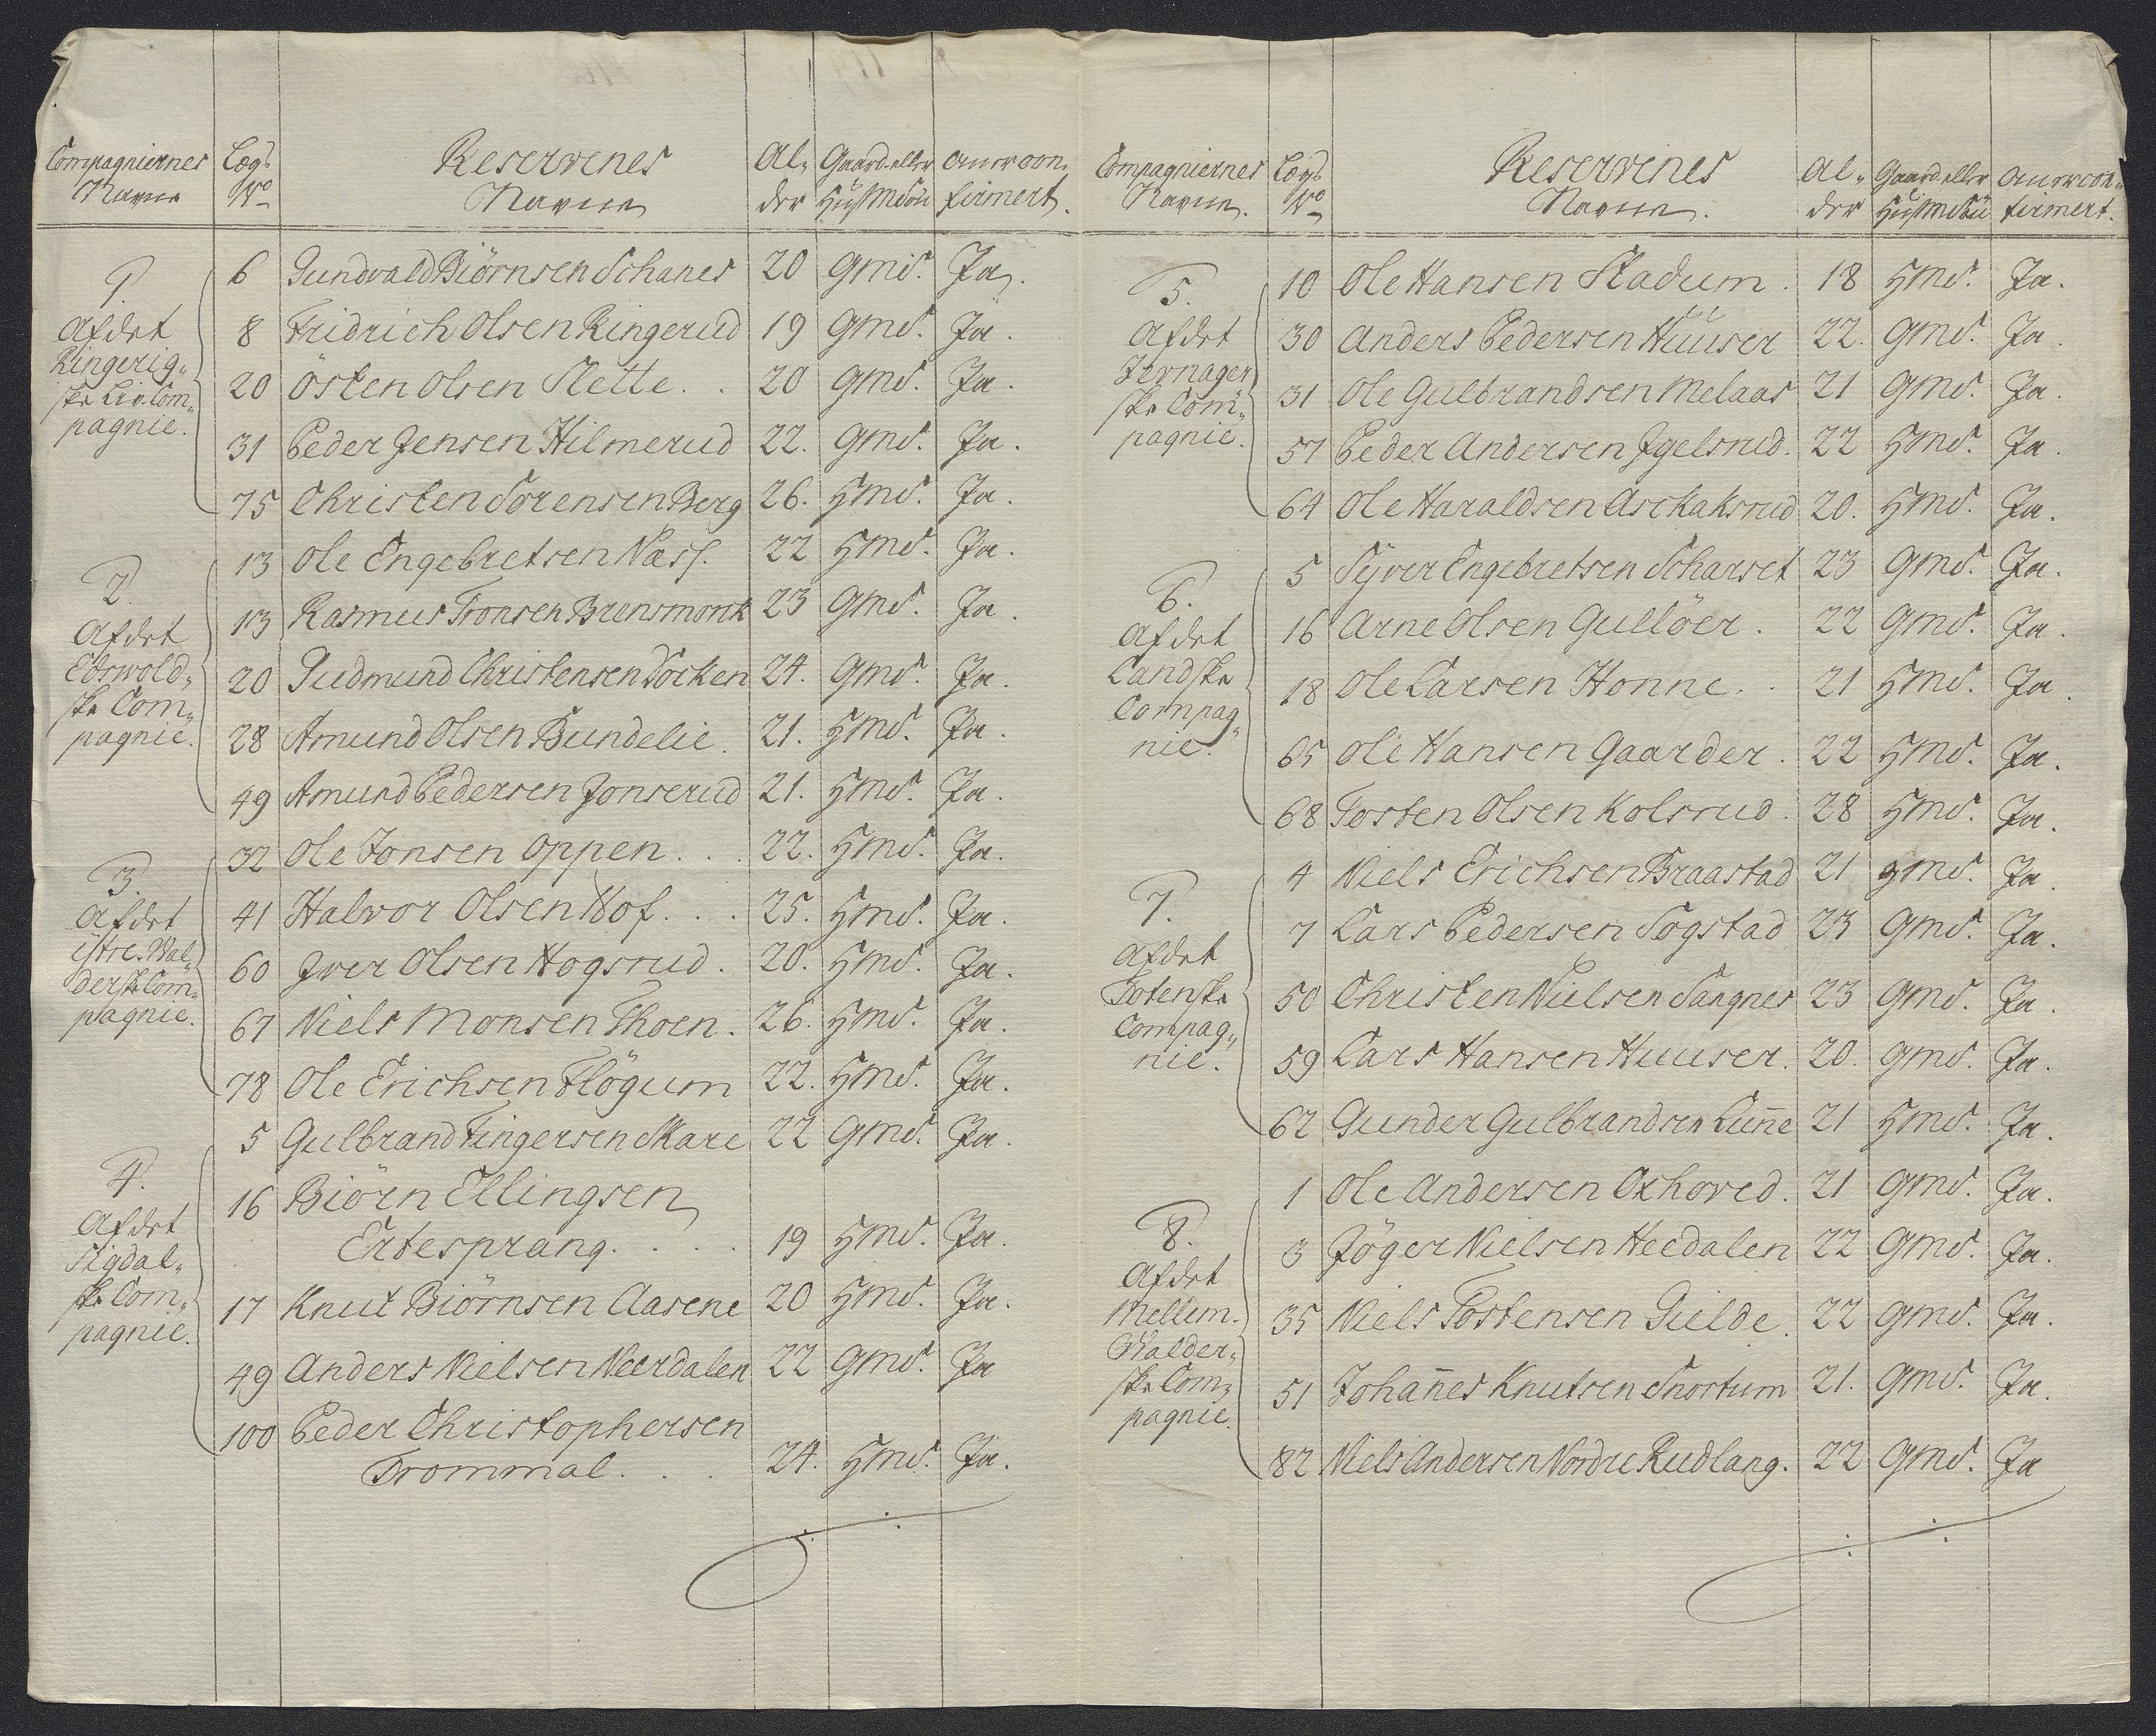 Compagniernes Navne
Lægd No
Reservenes Navne
Al„ der
Gaard eller Huusm Sön
om er con„ firmert.
1. Af det Ringerig„ ske Liv Com„ pagnie.
6 Gundvald Biörnsen Schanes 20 Gmd. Ja.
8 Fridrich Olsen Ringerud 19 Gmd. Ja.
20 Østen Olsen Slette . . 20 Gmd. Ja.
31 Peder Jensen Hilmerud 22. Gmd. Ja.
75 Christen Sörensen Berg 26. Hmd. Ja.
2. Af det Edswold„ ske Com„ pagnie.
13 Ole Engebretsen Næss. 22 Hmd. Ja.
13 Rasmus Tronsen Brensmork 23 Gmd. Ja.
20 Gudmund Christensen Döcken 24. Gmd. Ja.
28 Amund Olsen Bundelie. 21. Hmd. Ja.
49 Amund Pedersen Jonserud 21. Hmd. Ja.
3. Af det östre Wal„ derske Com„ pagnie.
32 Ole Jonsen Oppen . . . 22. Hmd. Ja.
41 Halvor Olsen Hof . . . 25. Hmd. Ja.
60 Iver Olsen Hogsrud . 20. Hmd. Ja.
67 Niels Monsen Thoen . 26. Hmd. Ja.
78 Ole Erichsen Flögum 22. Hmd. Ja.
4. Af det Sigdal„ ske Com„ pagnie.
5 Gulbrand Fingersen Mare 22 Gmd. Ja.
16 Biörn Ellingsen
Ertesprang . . . . 19 Hmd. Ja.
17 Knut Biörnsen Aasene 20 Hmd. Ja.
49 Anders Nielsen Neerdalen 22 Gmd. Ja
100 Peder Christophersen
Trommal . . . 24. Hmd. Ja.
Compagniernes Navne.
Lægd No
Reservenes Navne.
Al„ der
Gaard eller Huusm Sön
om er con„ firmert.
5. Af det Jevnager ske Com„ pagnie.
10 Ole Hansen Stadum . 18 Hmd. Ja.
30 Anders Pedersen Huuser 22. Gmd. Ja.
31 Ole Gulbrandsen Melaas 21 Gmd. Ja.
57 Peder Andersen Igelsrud. 22 Hmd. Ja.
64 Ole Haraldsen Aschaksrud 20. Hmd. Ja.
6. Af det Landske Compag„ nie.
5 Syver Engebretsen Scharset 23 Gmd. Ja.
16 Arne Olsen Gullöer . 22 Gmd. Ja.
18 Ole Larsen Honne . . 21 Hmd. Ja.
65 Ole Hansen Gaarder . 22 Hmd. Ja.
68 Tosten Olsen Kolsrud . 28 Hmd. Ja.
7. Af det Totenske Compag„ nie.
4 Niels Erichsen Braastad 21 gmd. Ja.
7 Lars Pedersen Sogstad 23 Gmd. Ja.
50 Christen Nielsen Sangnes 23 Gmd. Ja.
59 Lars Hansen Huuser. 20. Gmd. Ja.
62 Gunder Gulbrandsen Lun̄e 21 Hmd. Ja.
8. Af det Mellem. Walder„ ske Com„ pagnie.
1 Ole Andersen Oxhoved. 21 Gmd. Ja.
3 Jöger Nielsen Heedalen 22 Gmd. Ja.
35 Niels Tostensen Gielde. 22 Gmd. Ja.
51 Johan̄es Knutsen Snortum 21. Gmd. Ja.
82 Niels Andersen Nordre Rudlang. 22 Gmd. Ja